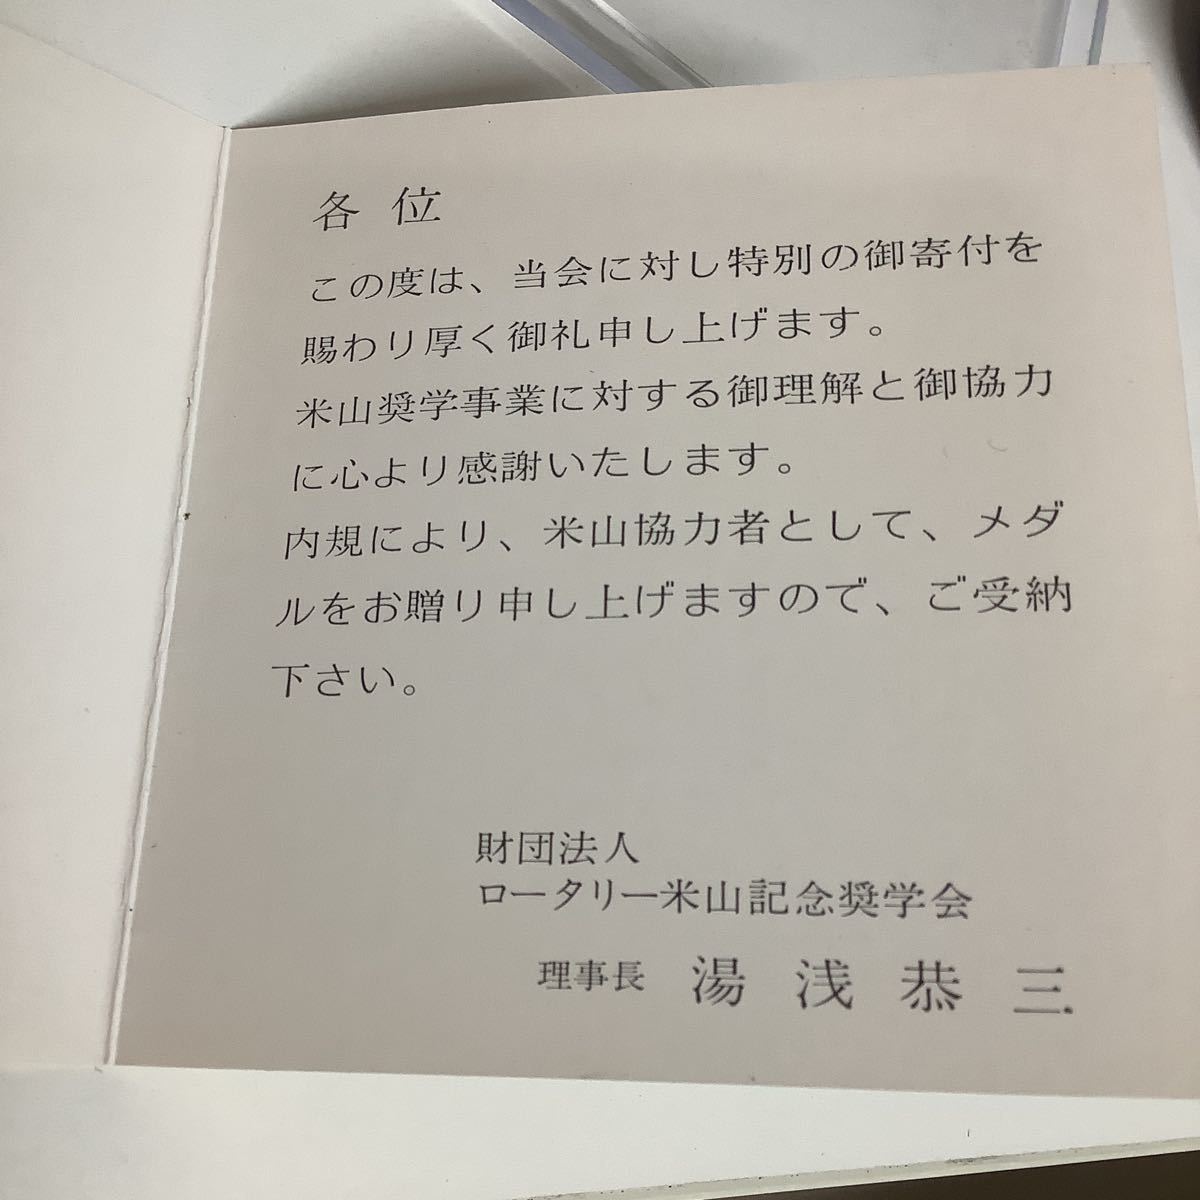 各位
この度は、当会に対し特別の御寄付を
賜わり厚く御礼申し上げます。
米山奨学事業に対する御理解と御協力
に心より感謝いたします。
内規により、米山協力者として、メダ
ルをお贈り申し上げますので、ご受納
下さい。
財団法人
ロータリー米山記念奨学会
理事長 湯浅恭三